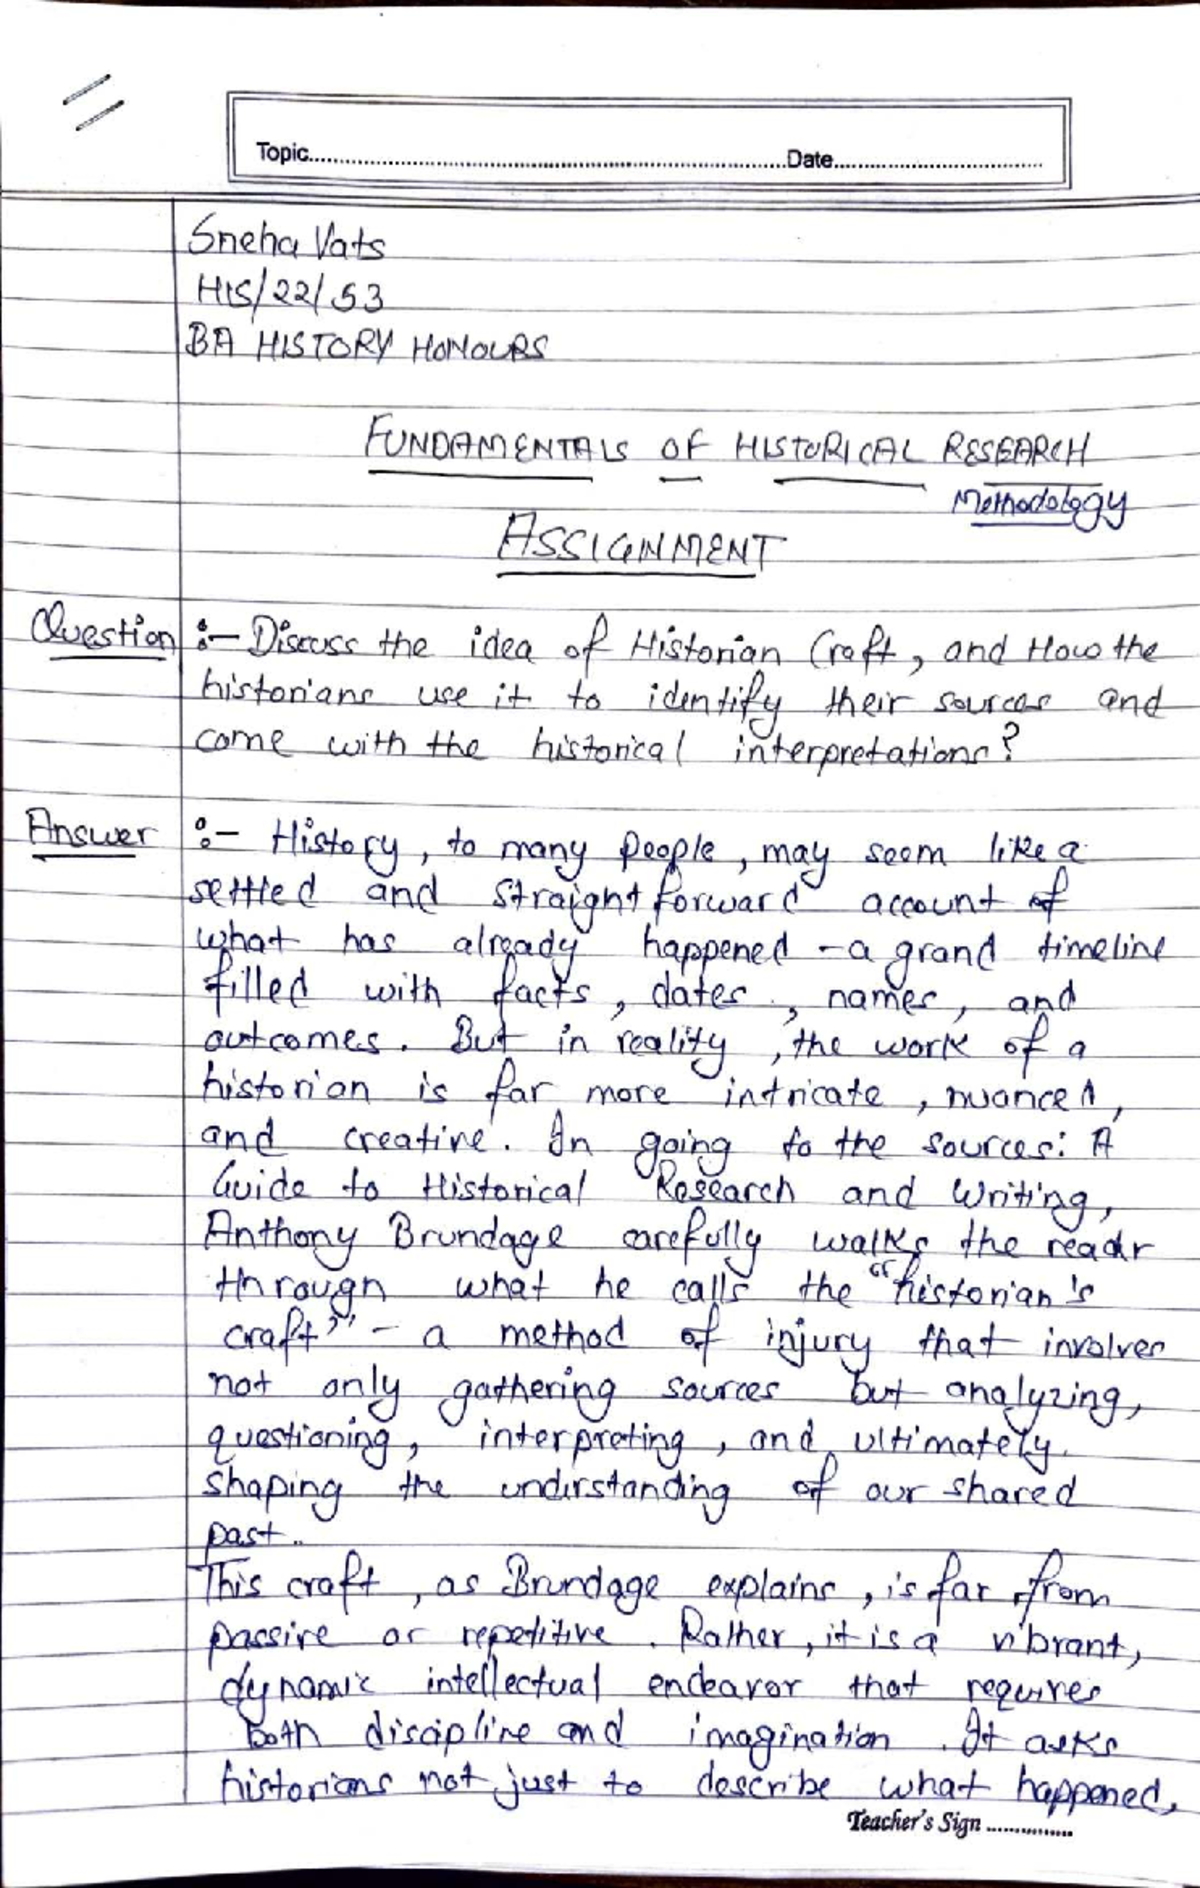 Topic....................Date....................
Sneha Vats
HIS/22/53
BA HISTORY HONOURS
FUNDAMENTALS OF HISTORICAL RESEARCH
Methodology
ASSIGNMENT
Question :- Discuss the idea of Historian Craft, and How the
historians use it to identify their sources and
come with the historical interpretations?
Answer :- History, to many people, may seem like a
settled and straight forward account of
what has already happened - a grand timeline
filled with facts, dates, names, and
outcomes. But in reality, the work of a
historian is far more intricate, nuanced,
and creative. In going to the sources: A
Guide to Historical Research and Writing,
Anthony Brundage carefully walks the readr
through what he calls the "historian's
craft" - a method of injury that involves
not only gathering sources but analyzing,
questioning, interpreting, and ultimately.
shaping the understanding of our shared
past..
This craft, as Brundage explains, is far from
passive or repetitive. Rather, it is a vibrant,
dynamic intellectual endeavor that requires
both discipline and imagination. It asks
historians not just to describe what happened,
Teacher's Sign ...............